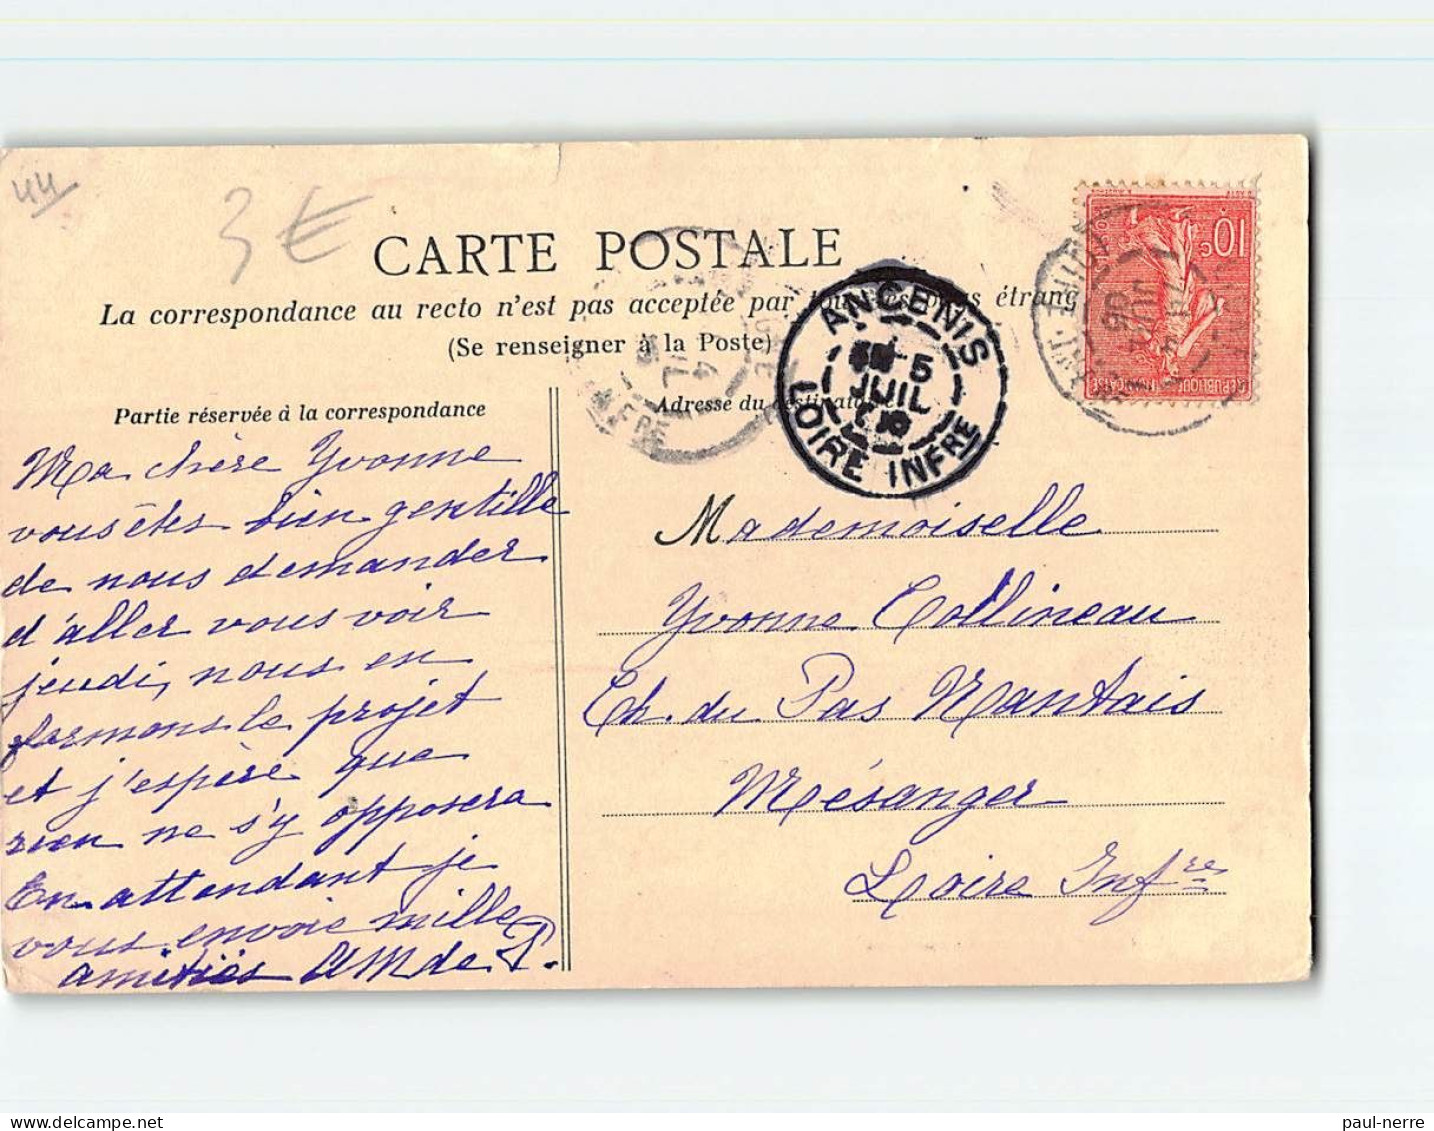 44
3€
CARTE POSTALE
La correspondance au recto n'est pas acceptée par tous les pays étrang
(Se renseigner à la Poste)
ANCENIS
5
JUIL
LOIRE INFRE
4
INFRE
10c
REPUBLIQUE FRANÇAISE
Partie réservée à la correspondance
Adresse du destinataire
Ma chère Yvonne
vous êtes bien gentille
de nous demander
d'aller vous voir
jeudi, nous en
formons le projet
et j'espère que
rien ne s'y opposera
En attendant je
vous envoie mille
amitiés AM de P.
Mademoiselle
Yvonne Collineau
Ch. du Pas Nantais
Mésanger
Loire Infre
paul-nerre